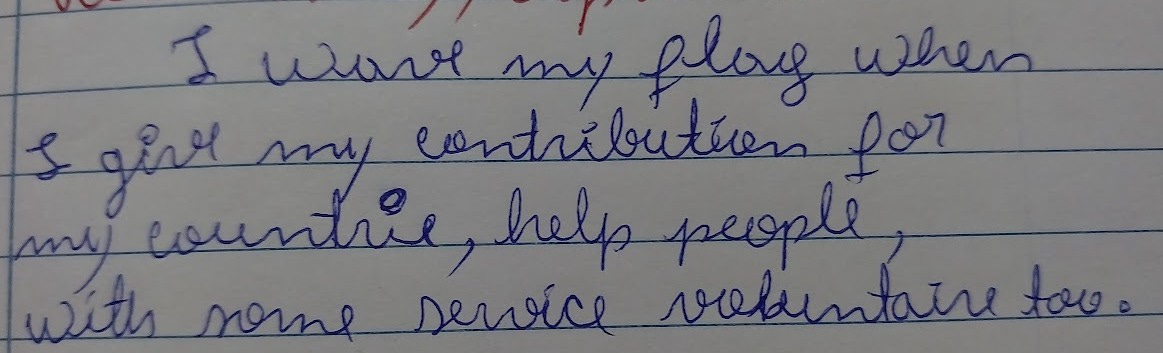 I wave my flag when
I give my contribution for
my countrie, help people,
with some service voluntaire too.